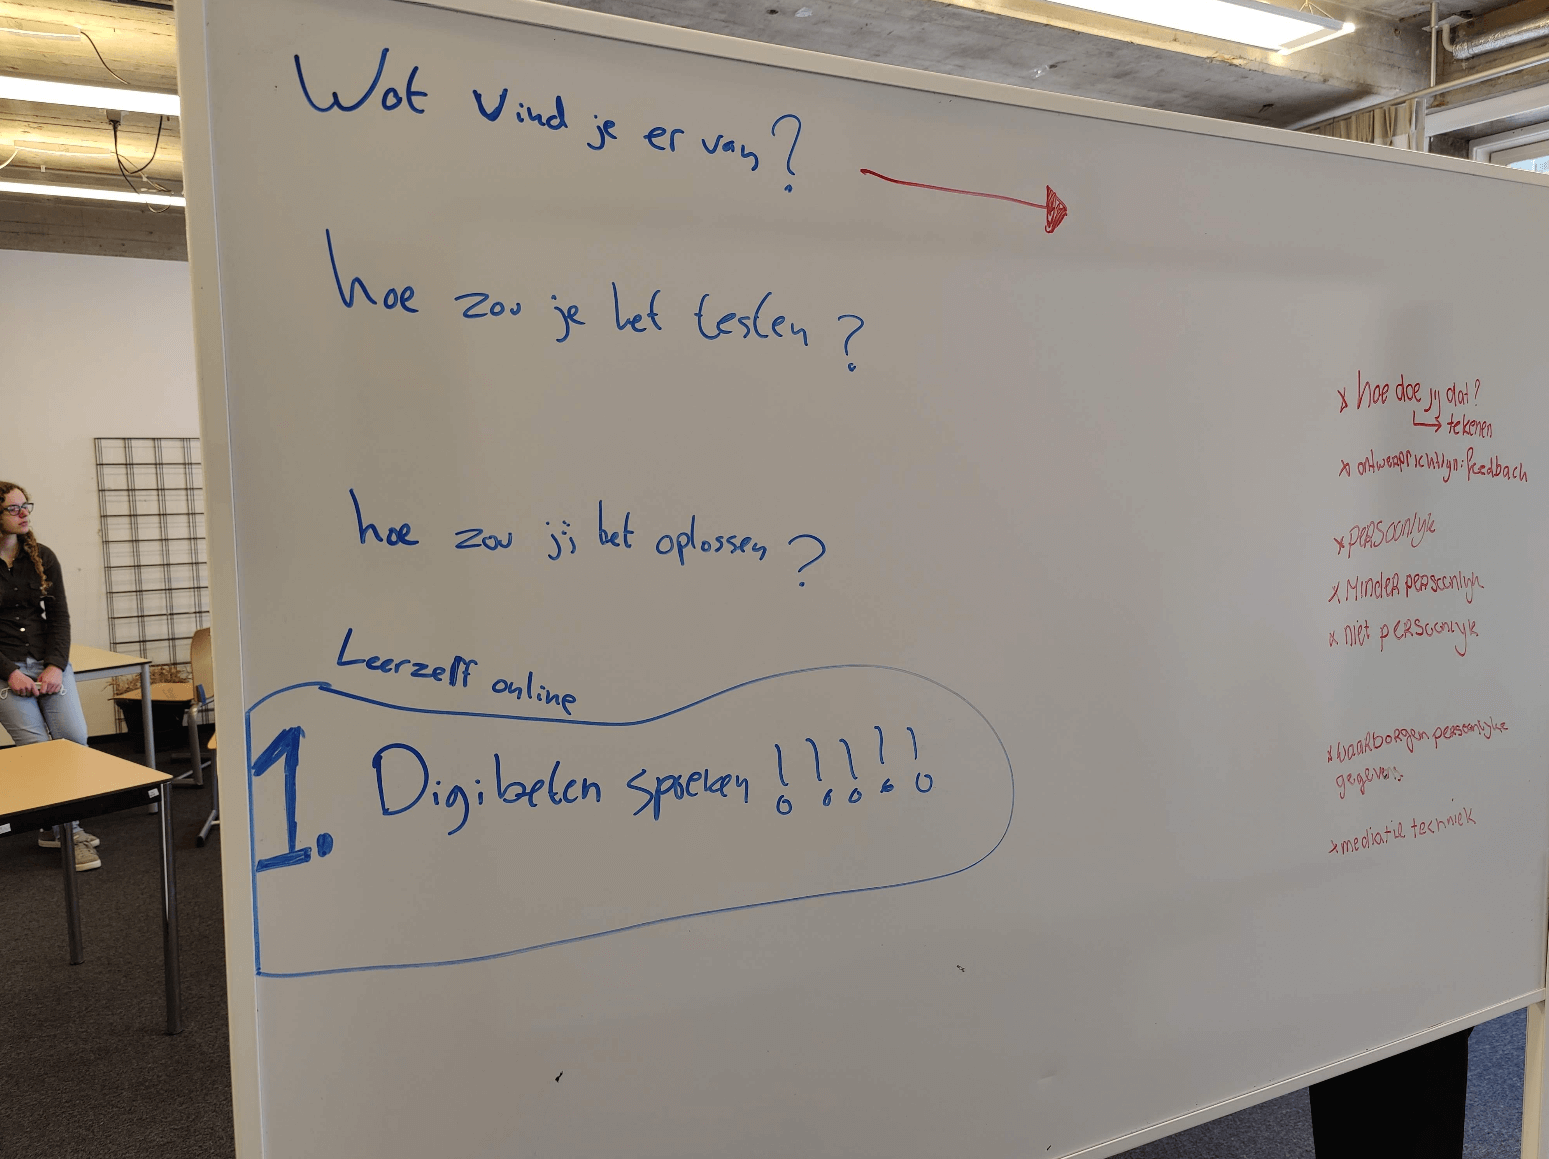 Wat vind je er van?
hoe zou je het testen?
hoe zou jij het oplossen?
Leerzelf online
1. Digibeten spreken !!!!!
x hoe doe jij dat?
↳ tekenen
x ontwerprichtlijn: feedback
x persoonlijk
x Minder persoonlijk
x niet persoonlijk
x waarborgen persoonlijke
gegevens
x mediatie techniek